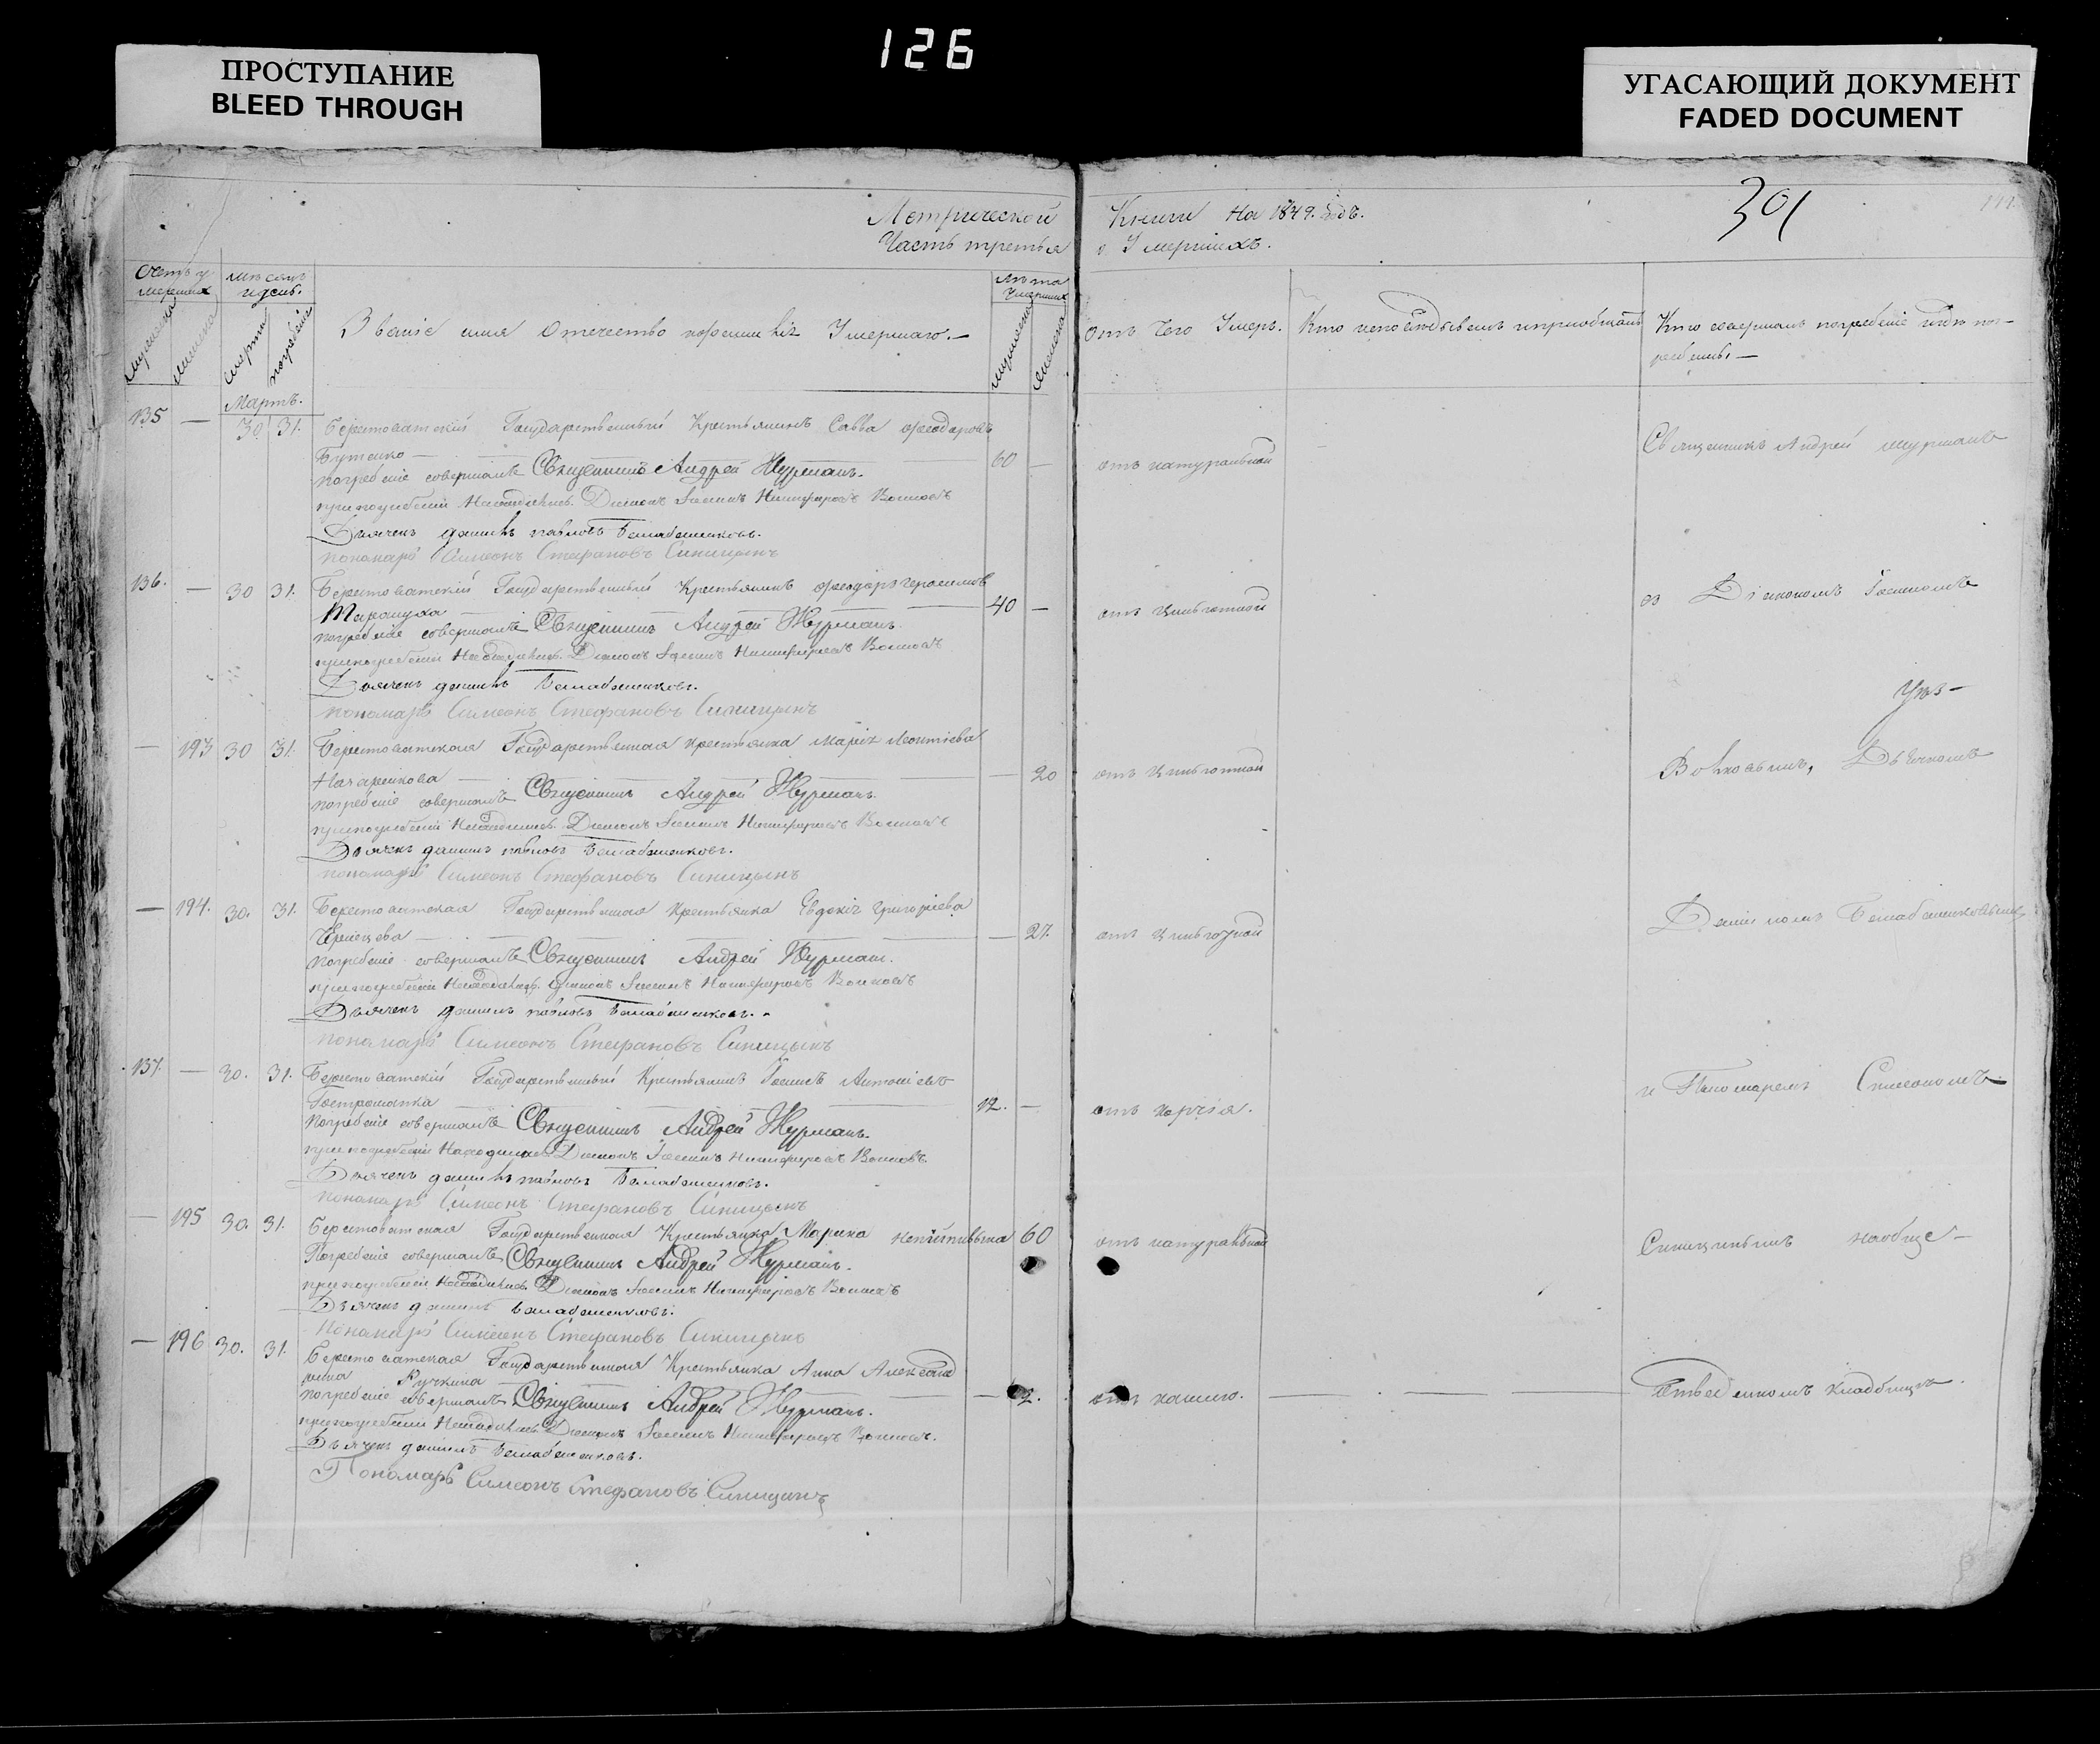 126
ПРОСТУПАНИЕ
BLEED THROUGH
УГАСАЮЩИЙ ДОКУМЕНТ
FADED DOCUMENT
301
Метрической Книги на 1849. годъ.
Часть третья о Умершихъ.
Счетъ умершихъ
мѣсяцъ и день.
Званіе имя отечество и фамилія Умершаго.—
лѣта умершихъ
отъ чего Умеръ.
Кто исповѣдывалъ и пріобщалъ
Кто совершалъ погребеніе и гдѣ погребены.—
мужеска
женска
смерти
погребенія
мужеска
женска
Мартъ.
135 — 30 31. Берестоватскій Государственный Крестьянинъ Савва Феодоровъ
Бутенко — 60 — отъ натуральной
Священникъ Андрей Журманъ
погребеніе совершалъ Священникъ Андрей Журманъ.
при погребеніи находились Діаконъ Іоаннъ Никифоровъ Волковъ
Дьячекъ Даніилъ Павловъ
пономарь Симеонъ Стефановъ Синицынъ
136. — 30 31. Берестоватскій Государственный Крестьянинъ Феодоръ Герасимовъ
40 — отъ цынготной
съ Діакономъ Іоанномъ
погребеніе совершалъ Священникъ Андрей Журманъ.
при погребеніи находились Діаконъ Іоаннъ Никифоровъ Волковъ
Дьячекъ Даніилъ
пономарь Симеонъ Стефановъ Синицынъ
— 193 30 31. Берестоватская Государственная Крестьянка Марія Леонтіева
Назаренкова — 20 отъ цынготной
Волковымъ, Дьячкомъ
погребеніе совершалъ Священникъ Андрей Журманъ.
при погребеніи находились Діаконъ Іоаннъ Никифоровъ Волковъ
Дьячекъ Даніилъ Павловъ
пономарь Симеонъ Стефановъ Синицынъ
— 194. 30. 31. Берестоватская Государственная Крестьянка Евдокія Григоріева
— 27. отъ цынготной
Даніиломъ
погребеніе совершалъ Священникъ Андрей Журманъ.
при погребеніи находились Діаконъ Іоаннъ Никифоровъ Волковъ
Дьячекъ Даніилъ Павловъ
пономарь Симеонъ Стефановъ Синицынъ
137. — 30. 31. Берестоватскій Государственный Крестьянинъ Іоаннъ Антоніевъ
12. —
и Пономаремъ Симеономъ
Погребеніе совершалъ Священникъ Андрей Журманъ.
при погребеніи находились Діаконъ Іоаннъ Никифоровъ Волковъ.
Дьячекъ Даніилъ Павловъ
пономарь Симеонъ Стефановъ Синицынъ
— 195 30. 31. Берестоватская Государственная Крестьянка Марина 60 отъ натуральной
Синицинымъ на обще-
Погребеніе совершалъ Священникъ Андрей Журманъ.
при погребеніи находились Діаконъ Іоаннъ Никифоровъ Волковъ
Дьячекъ Даніилъ
Пономарь Симеонъ Стефановъ Синицынъ
— 196 30. 31. Берестоватская Государственная Крестьянка Анна
Ручкина — 2. отъ кашлю.
ственномъ кладбищѣ.
погребеніе совершалъ Священникъ Андрей Журманъ.
при погребеніи находились Діаконъ Іоаннъ Никифоровъ Волковъ.
Дьячекъ Даніилъ
Пономарь Симеонъ Стефановъ Синицынъ